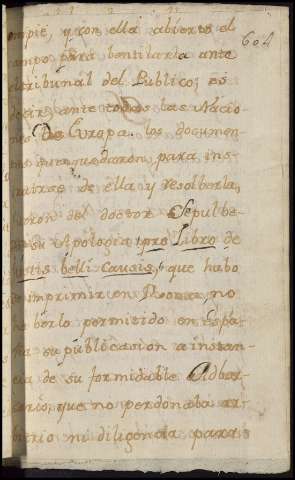 ompie, y con ella abierto el
604
ampo para bentilarla ante
el tribunál del Publico; es
decir, ante todas las Nacio-
nes De Europa. los documen-
tos que quedaron para ins-
truirse de ella y resolberla,
fueron del doctor Sepulbe-
da su Apologia pro Libro de
justis belli causis, que hubo
de imprimir en Roma, no
haberlo permitido en Espa-
ña su publicasion a instan-
cia de su formidable Adber-
sario, que no perdonaba ar-
bitrio ni diligencia para